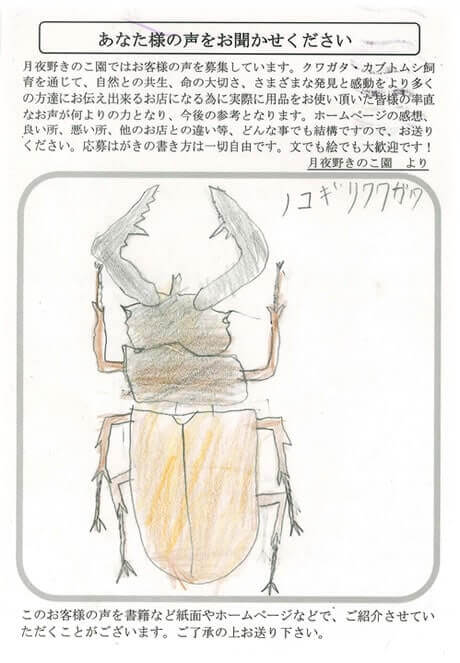 あなた様の声をお聞かせください
月夜野きのこ園ではお客様の声を募集しています。クワガタ・カブトムシ飼
育を通じて、自然との共生、命の大切さ、さまざまな発見と感動をより多く
の方達にお伝え出来るお店になる為に実際に用品をお使い頂いた皆様の率直
なお声が何よりの力となり、今後の参考となります。ホームページの感想、
良い所、悪い所、他のお店との違い等、どんな事でも結構ですので、お送り
ください。応募はがきの書き方は一切自由です。文でも絵でも大歓迎です！
月夜野きのこ園　より
ノコギリクワガタ
このお客様の声を書籍など紙面やホームページなどで、ご紹介させてい
ただくことがございます。ご了承の上お送り下さい。